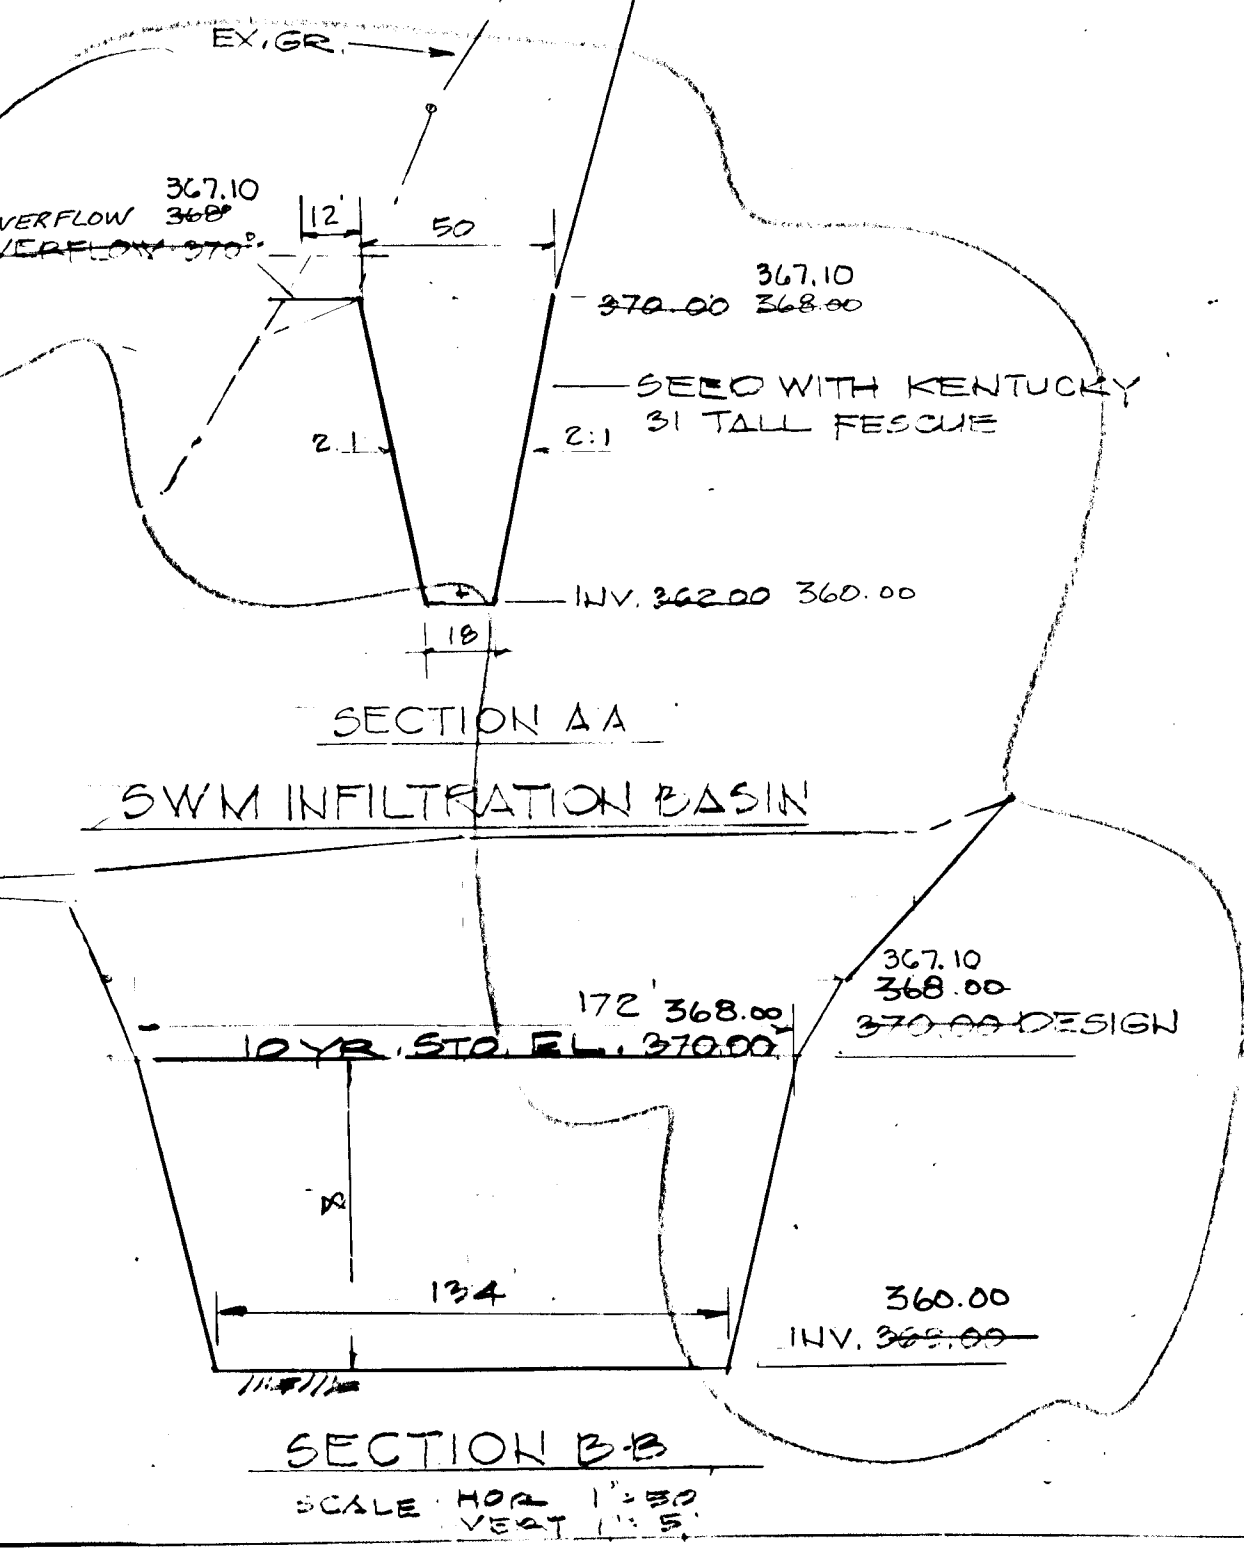 EX. GR.
367.10
VERFLOW 368°
VERFLOW 370°
12'
50
367.10
370.00 368.00
SEED WITH KENTUCKY
31 TALL FESCUE
2:1
2:1
INV. 362.00 360.00
18
SECTION AA
SWM INFILTRATION BASIN
367.10
368.00
370.00 DESIGN
172' 368.00
10 YR. STO. EL. 370.00
8
134
360.00
INV.
SECTION B-B
SCALE HOR 1"=50'
VERT 1"=5'